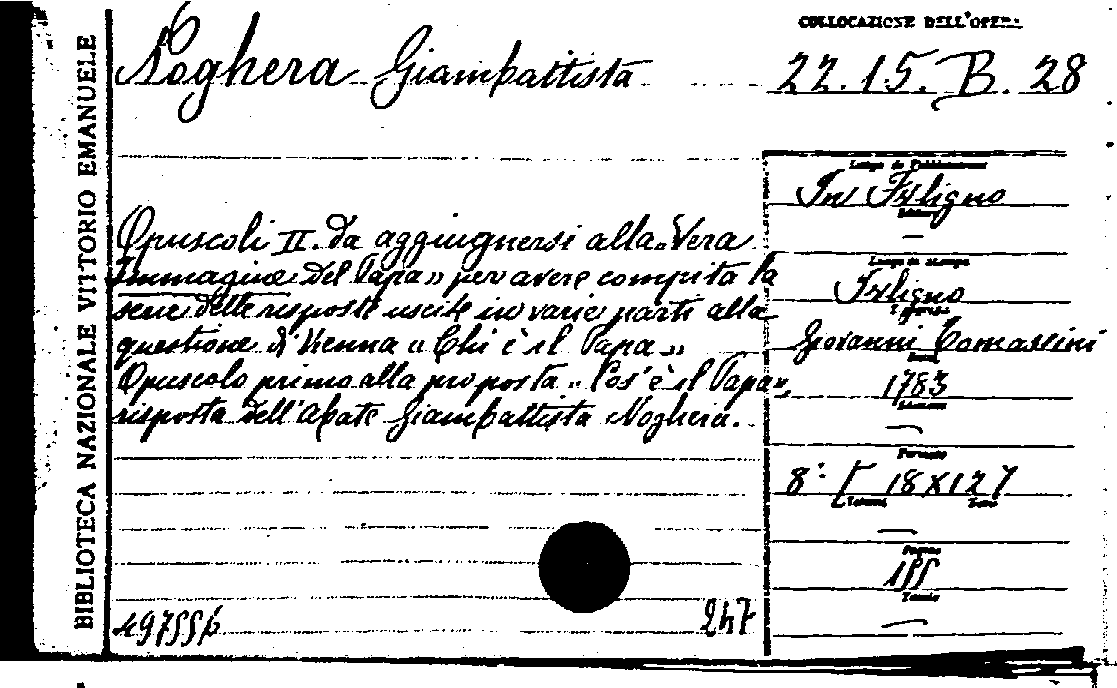 COLLOCAZIONE DELL'OPERA
Noghera Giambattista
22.15.B.28
BIBLIOTECA NAZIONALE VITTORIO EMANUELE
Opuscoli II. da aggiugnersi alla "Vera
Immagine del Papa" per avere compita la
serie delle risposte uscite in varie parti alla
questione di Vienna "Chi è il Papa"
Opuscolo primo alla proposta "Cos'è il Papa",
risposta dell'abate Giambattista Noghera.
Luogo di Pubblicazione
In Foligno
Editore
—
Luogo di stampa
Foligno
Tipografo
Giovanni Tomassini
1783
Edizione
—
Formato
8° [18X12]
Volumi
Tomo
—
Pagine
155
Tavole
—
247